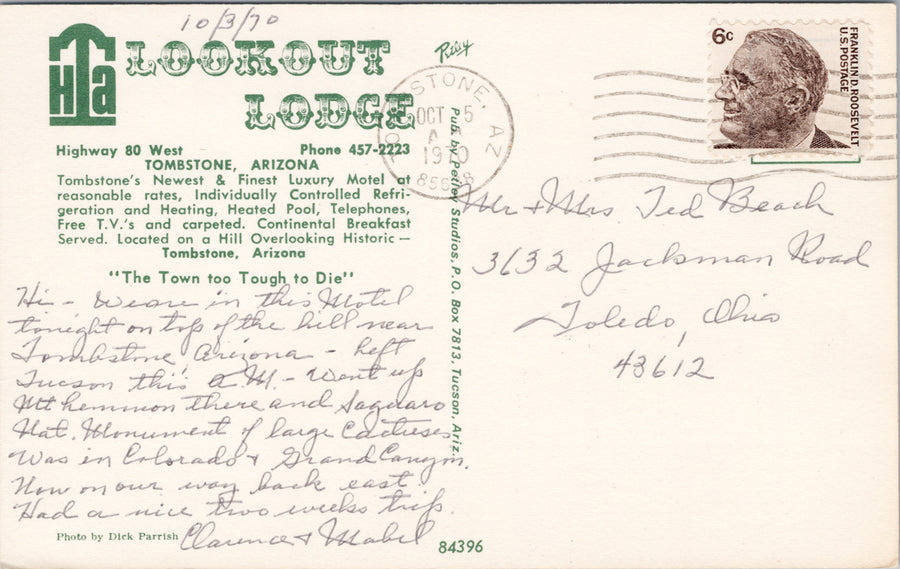 10/3/70
HTa
LOOKOUT
LODGE
Petley
Highway 80 West Phone 457-2223
TOMBSTONE, ARIZONA
Tombstone's Newest & Finest Luxury Motel at
reasonable rates, Individually Controlled Refri-
geration and Heating, Heated Pool, Telephones,
Free T.V.'s and carpeted. Continental Breakfast
Served. Located on a Hill Overlooking Historic —
Tombstone, Arizona
"The Town too Tough to Die"
Hi - We are in this Motel
tonight on top of the hill near
Tombstone, Arizona - left
Tucson this A.M. - Went up
Mt hemmon there and Saguaro
Nat. Monument of large Cactuses
Was in Colorado & Grand Canyon.
Now on our way back east.
Had a nice two weeks trip.
Clarence & Mabel
Photo by Dick Parrish
84396
Pub. by Petley Studios, P.O. Box 7813, Tucson, Ariz.
TOMBSTONE, AZ
OCT 5
1970
6c
FRANKLIN D. ROOSEVELT
U.S. POSTAGE
Mr & Mrs. Ted Beach
3632 Jackman Road
Toledo, Ohio
43612